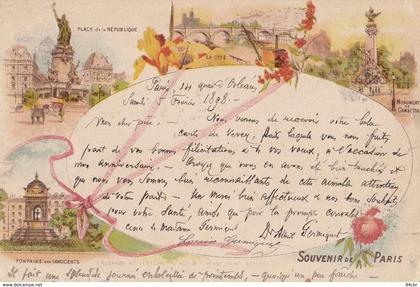 PLACE DE LA RÉPUBLIQUE
LA CITÉ
MONUMENT
DE
GAMBETTA
Paris, quai d'Orléans,
Samedi 5 Février 1898.—
Mon cher père, — Nous venons de recevoir votre belle
carte de Vevey, par laquelle vous nous faites
part de vos bonnes félicitations & de vos vœux, à l'occasion de
mon anniversaire. Croyez que nous en avons été bien touchés et
que nous vous sommes bien reconnaissants de cette aimable attention
de votre part. — Un merci bien affectueux & nos bons souhaits
pour votre santé, ainsi que pour la prompte
de Madame Germiquet. Dr Albert Germiquet
FONTAINE DES INNOCENTS
SOUVENIR DE PARIS
Il fait une splendide journée ensoleillée de printemps, — quoiqu'un peu fraîche —
www.delcampe.net
94chr